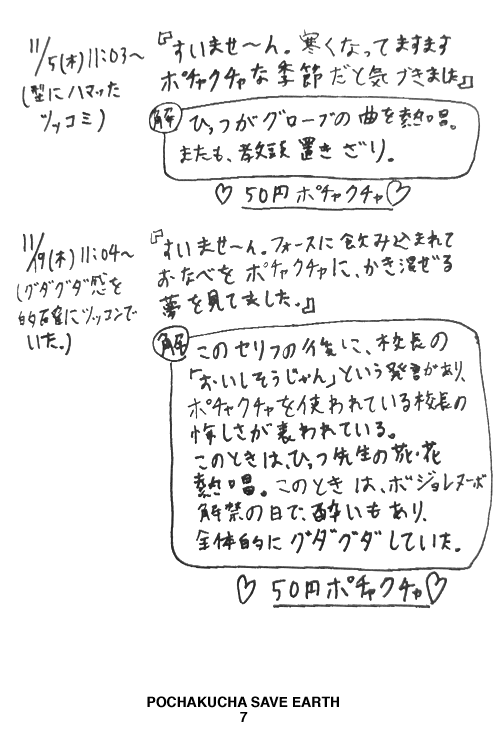 11/5(木)11:03〜
(型にハマった
ツッコミ)
『すいませ〜ん。寒くなってますます
ポチャクチャな季節だと気づきました』
解
ひっつがグローブの曲を熱唱。
またも、教頭置きざり。
♡50円ポチャクチャ♡
11/19(木)11:04〜
(グダグダ感を
的確にツッコンで
いた。)
『すいませ〜ん。フォースに飲み込まれて
おなべをポチャクチャに、かき混ぜる
夢を見てました。』
解
このセリフの後に、校長の
「おいしそうじゃん」という発言があり、
ポチャクチャを使われている校長の
悔しさが表われている。
このときは、ひっつ先生の花・花
熱唱。このときは、ボジョレヌーボ
解禁の日で、酔いもあり、
全体的にグダグダしていた。
♡50円ポチャクチャ♡
POCHAKUCHA SAVE EARTH
7